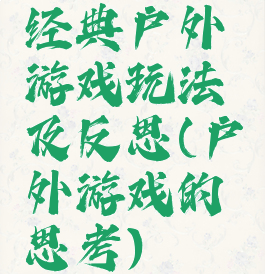 经典户外
游戏玩法
及反思(户
外游戏的
思考)